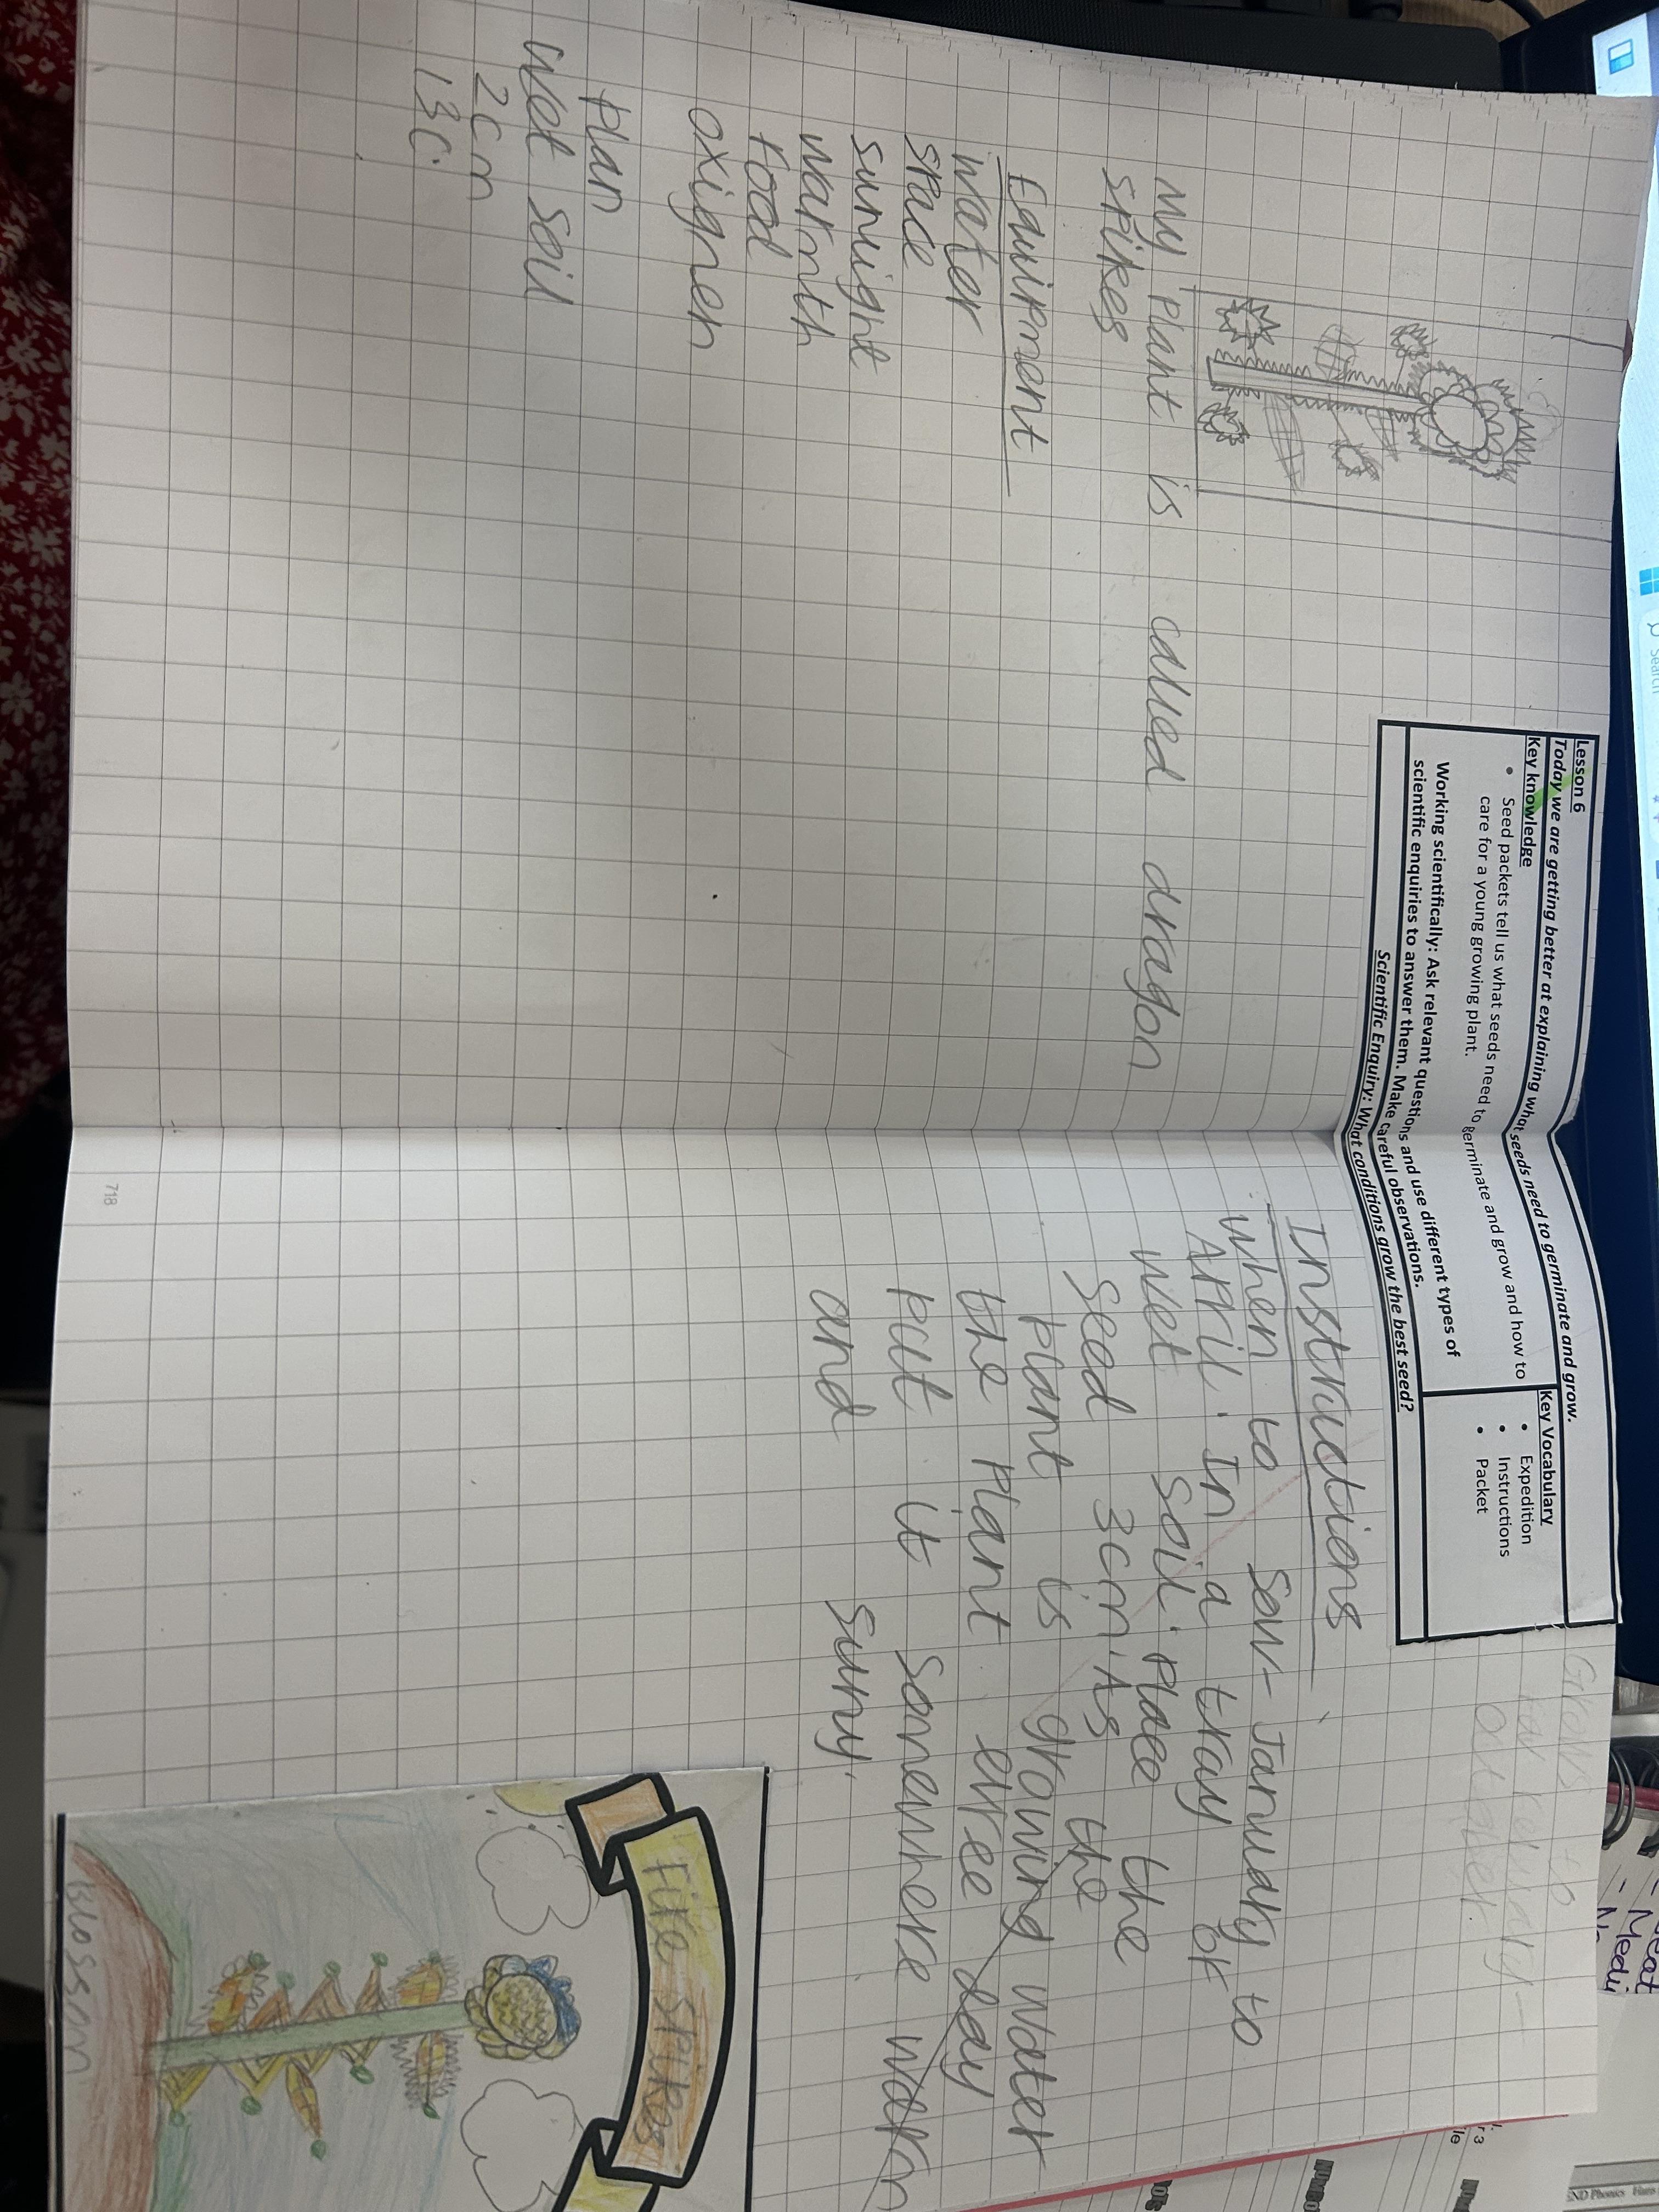 Lesson 6
Today we are getting better at explaining what seeds need to germinate and grow.
Key knowledge
• Seed packets tell us what seeds need to germinate and grow and how to
care for a young growing plant.
Working scientifically: Ask relevant questions and use different types of
scientific enquiries to answer them. Make careful observations.
Scientific Enquiry: What conditions grow the best seed?
Key Vocabulary
• Expedition
• Instructions
• Packet
My Plant is called dragon
spikes
Equipment
water
space
sunlight
warmth
food
oxignen
Plan
Wet soil
2cm
13C.
Instructions
When to sow- January to
April. In a tray of
wet soil. Place the
seed 3cm. As the
plant is growing water
the plant evree day
put it somewhere warm
and suny.
Fire spikes
Blossom
718
Search